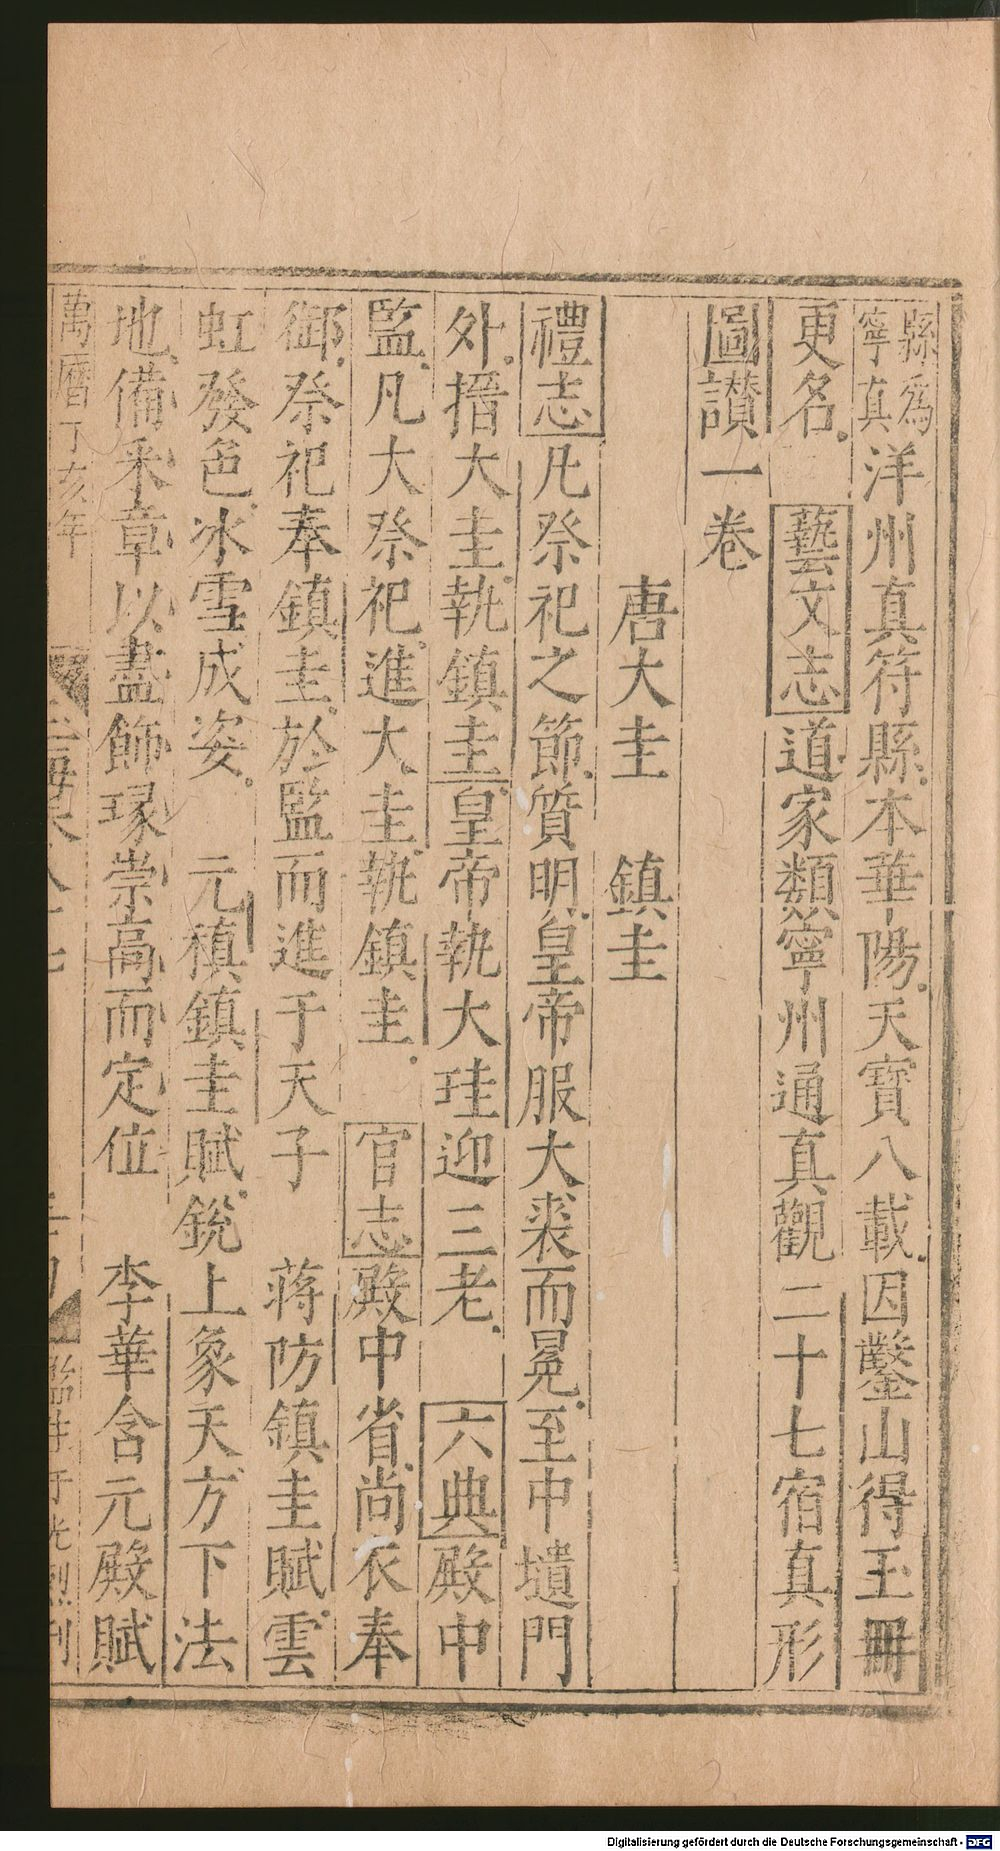 縣為
寧真
洋州真符縣本華陽天寶八載因鑿山得玉冊
更名 藝文志道家類寧州通真觀二十七宿真形
圖讃一卷
唐大圭 鎮圭
禮志凡祭祀之節質明皇帝服大裘而冕至中壝門
外搢大圭執鎮圭皇帝執大珪迎三老 六典殿中
監凡大祭祀進大圭執鎮圭 官志殿中省尚衣奉
御祭祀奉鎮圭於監而進于天子 蒋防鎮圭賦雲
虹發色冰雪成姿 元稹鎮圭賦銳上象天方下法
地備采章以盡飾琢崇高而定位 李華含元殿賦
萬曆丁亥年
刊
Digitalisierung gefördert durch die Deutsche Forschungsgemeinschaft - DFG